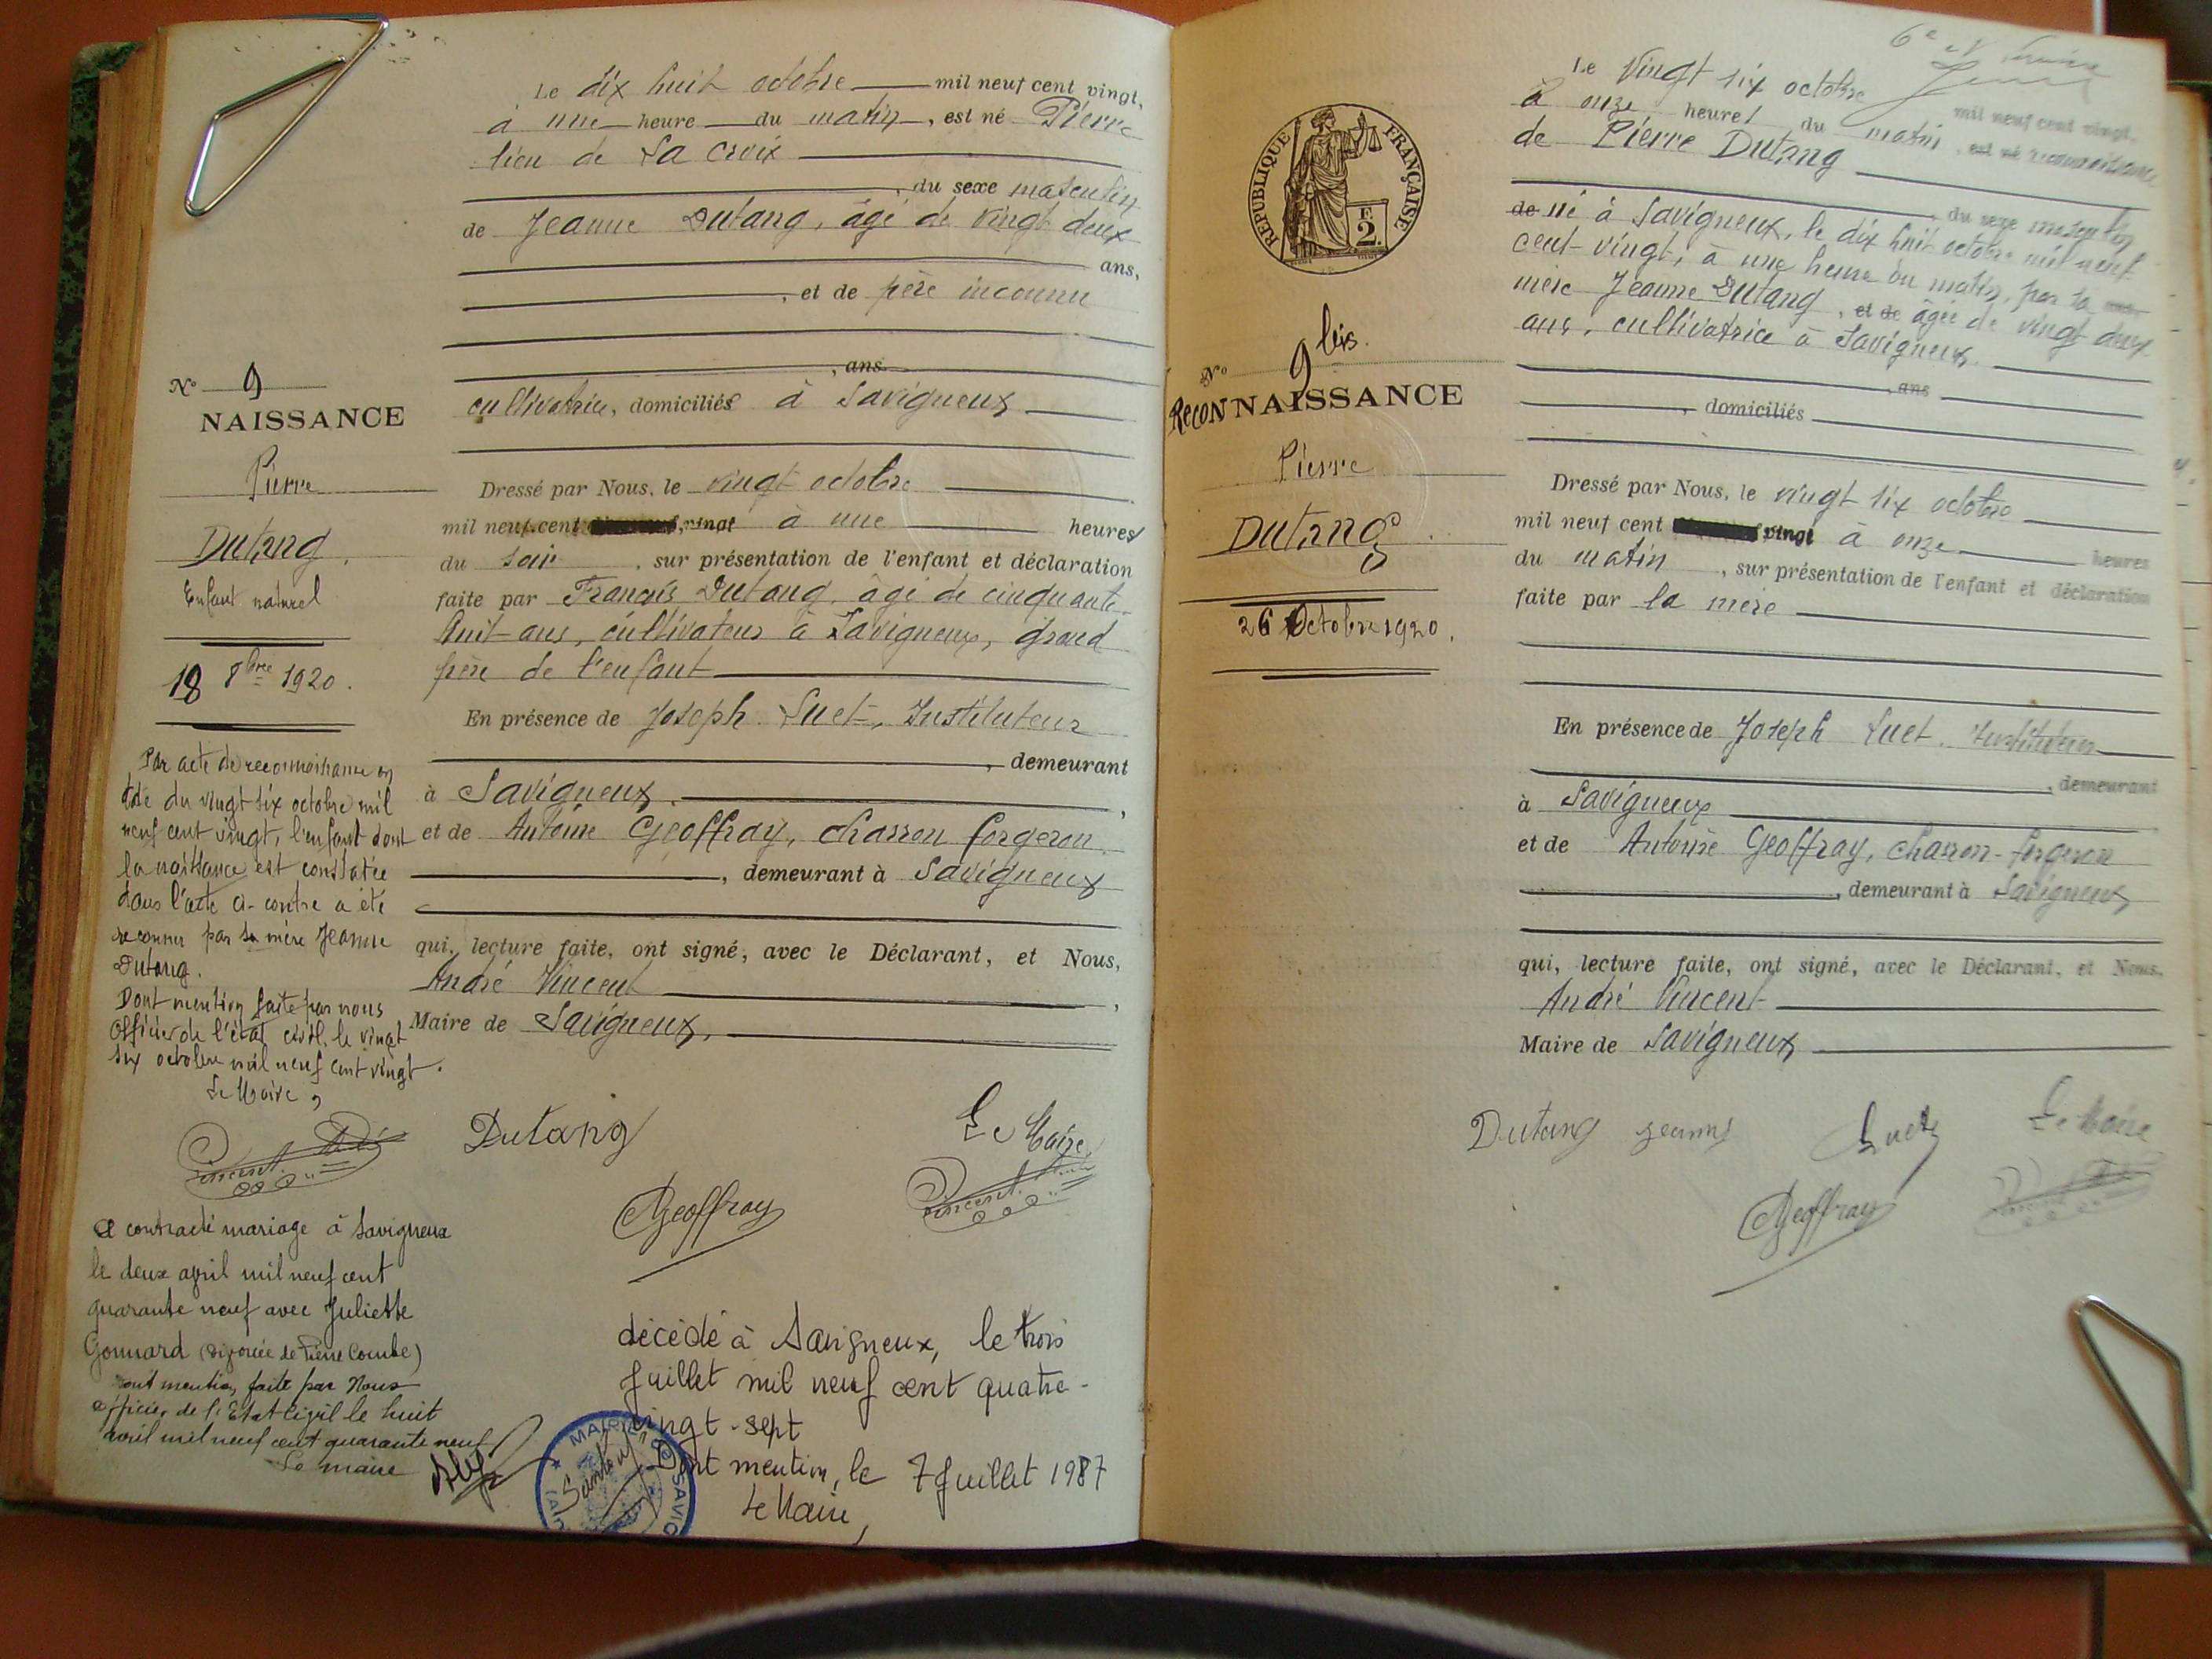 Le dix huit octobre mil neuf cent vingt,
à une heure du matin, est né Pierre
lieu de La Croix
, du sexe masculin
de Jeanne Dutang, âgé de vingt deux
ans,
, et de père inconnu
, ans
cultivatrice, domiciliés à Savigneux
Nº 9
NAISSANCE
Pierre
Dutang
Enfant naturel
18 8bre 1920.
Dressé par Nous, le vingt octobre
mil neuf cent vingt à une heures
du soir, sur présentation de l'enfant et déclaration
faite par François Dutang, âgé de cinquante
huit ans, cultivateur à Savigneux, grand
père de l'enfant
En présence de Joseph Suet, Instituteur
, demeurant
à Savigneux,
et de Antoine Geoffray, charron forgeron
, demeurant à Savigneux
qui, lecture faite, ont signé, avec le Déclarant, et Nous,
André Vincent,
Maire de Savigneux,
Par acte de reconnaissance en
date du vingt six octobre mil
neuf cent vingt, l'enfant dont
la naissance est constatée
dans l'acte ci-contre a été
reconnu par sa mère Jeanne
Dutang.
Dont mention faite par nous
Officier de l'état civil, le vingt
six octobre mil neuf cent vingt.
Le Maire,
Vincent
Dutang
Le Maire,
Geoffray
Vincent
A contracté mariage à Savigneux
le deux avril mil neuf cent
quarante neuf avec Juliette
Gonnard (divorcée de Pierre Combe)
dont mention faite par Nous
officier de l'Etat Civil le huit
avril mil neuf cent quarante neuf
Le maire
décédé à Savigneux, le trois
Juillet mil neuf cent quatre-
vingt-sept
Dont mention, le 7 Juillet 1987
Le Maire,
MAIRIE DE SAVIG
Le vingt six octobre mil neuf cent vingt,
à onze heures du matin, est né reconnaissance
de Pierre Dutang
, du sexe masculin
de né à Savigneux, le dix huit octobre mil neuf
cent-vingt, à une heure du matin, par sa
mère Jeanne Dutang, et de âgée de vingt deux
ans, cultivatrice à Savigneux
, ans
, domiciliés
RÉPUBLIQUE FRANÇAISE
F
2
Nº 9 bis.
RECONNAISSANCE
Pierre
Dutang
26 Octobre 1920.
Dressé par Nous, le vingt six octobre
mil neuf cent vingt à onze heures
du matin, sur présentation de l'enfant et déclaration
faite par la mère
En présence de Joseph Suet, Instituteur
, demeurant
à Savigneux
et de Antoine Geoffray, charron-forgeron
, demeurant à Savigneux
qui, lecture faite, ont signé, avec le Déclarant, et Nous,
André Vincent
Maire de Savigneux
Dutang Jeanne Suet Le Maire
Geoffray